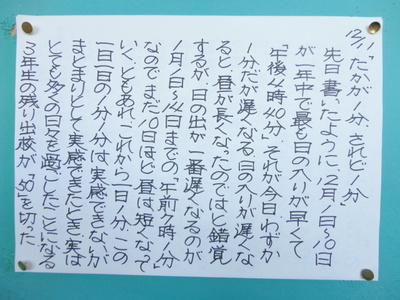 12/11「たかが1分、されど1分」
先日書いたように、12月1日〜10日
が一年中で最も日の入りが早くて
「午後4時40分」。それが今日わずか
1分だが遅くなる。日の入りが遅くな
ると、昼が長くなったのではと錯覚
するが、日の出が一番遅くなるのが
1月1日〜14日までの、午前7時1分
なのでまだ10日ほど、昼は短くなって
いく。ともあれ、これから一日1分、この
一日一日の1分1分は実感できないが
まとまりとして実感できたとき、実は
とても多くの日々を過ごしたことになる
3年生の残り出校が、「50」を切った